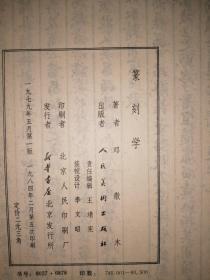 篆刻学
著者 邓散木
出版者 人民美术出版社
责任编辑 王靖宪
装帧设计 李文昭
印刷者 北京人民印刷厂
发行者 新华书店北京发行所
一九七九年五月第一版 一九八四年二月第五次印刷
定价二元三角
书号:8027·6878 印数: